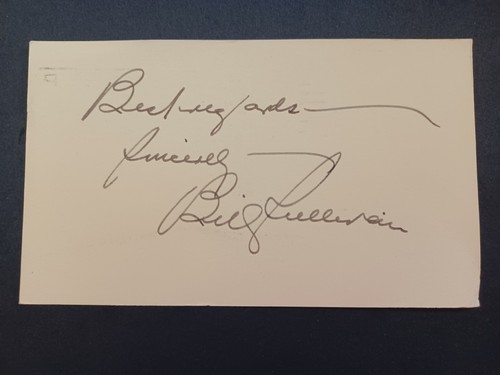 Best regards
Sincerely
Billy Sullivan